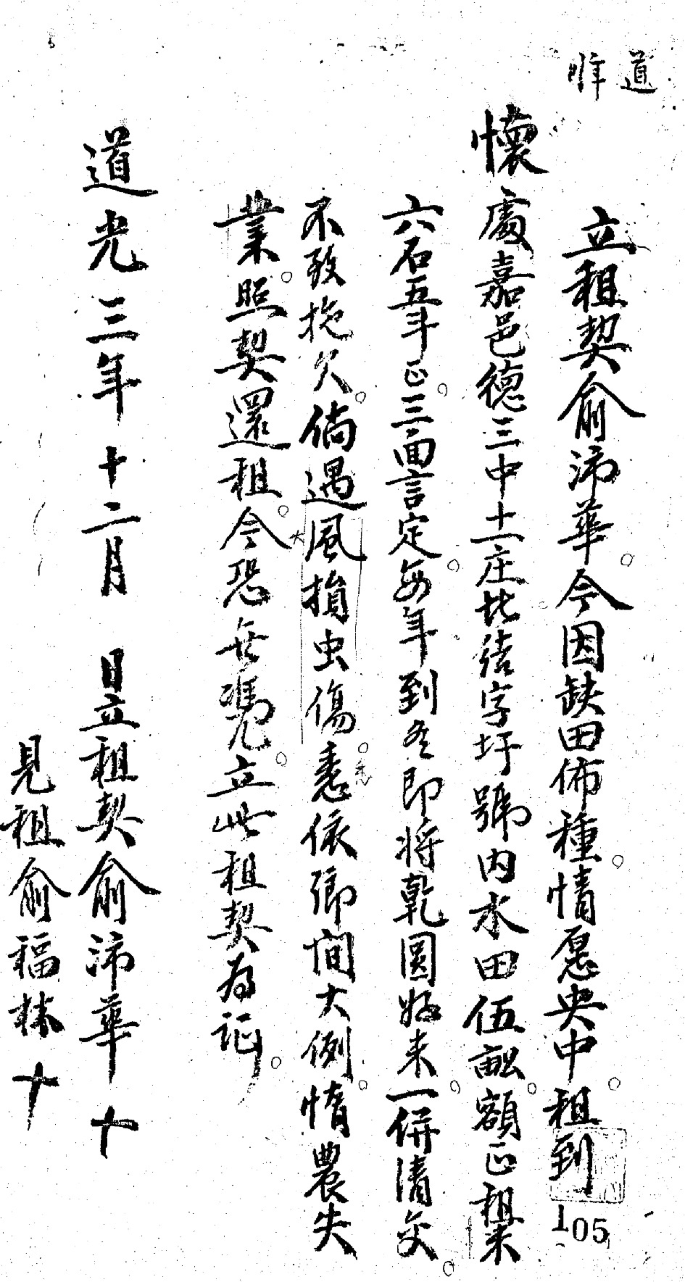 道
立租契俞沛華今因缺田佈種情愿央中租到
105
懷處嘉邑德三中土庄北結字圩號內水田伍畝額正租米
六石五斗正三面言定每年到冬即將乾圓好米一併清交
不致拖欠倘遇風損虫傷悉依鄉間大例惰農失
業照契還租今恐無憑立此租契為証
道光三年十二月 日立租契俞沛華十
見租俞福林十